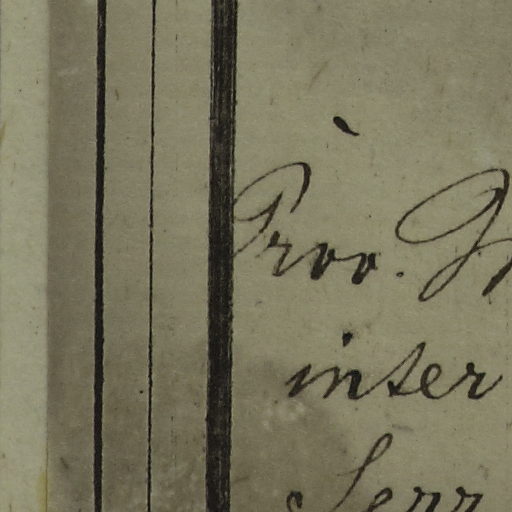 Prov.
inter
Serr